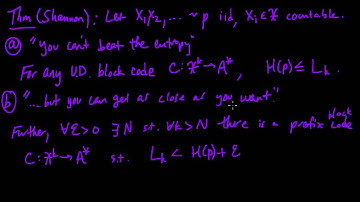 Thm (Shannon): Let X₁, X₂, ... ~ p iid, Xᵢ ∈ 𝒳 countable.
(a) "you can't beat the entropy"
For any U.D. block code C: 𝒳ᵏ → A*, H(p) ≤ Lₖ.
(b) "... but you can get as close as you want."
Further, ∀ε>0 ∃N s.t. ∀k>N there is a prefix block code
C: 𝒳ᵏ → A* s.t. Lₖ < H(p) + ε